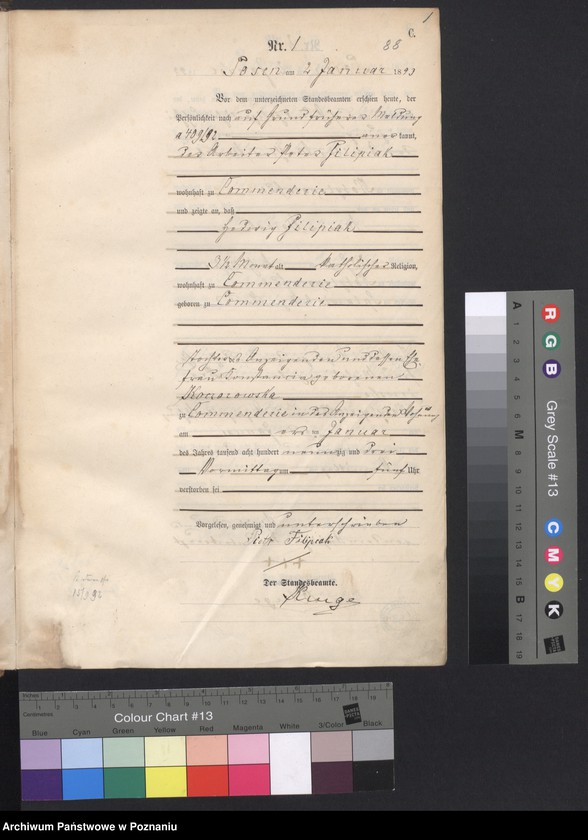 1
C.
Nr. 1 88
Posen am 2 Januar 1893
Vor dem unterzeichneten Standesbeamten erschien heute, der
Persönlichkeit nach auf Grund früherer Meldung
a 409/92 aner kannt,
der Arbeiter Peter Filipiak
wohnhaft zu Commenderie
und zeigte an, daß
Hedwig Filipiak
Monat alt katholischer Religion,
wohnhaft zu Commenderie
geboren zu Commenderie
Tochter des Anzeigenden und dessen Ehe
frau Konstancia geborenen
Koczorowska
zu Commenderie in des Anzeigenden Wohnung
am Januar
des Jahres tausend acht hundert neunzig und drei
Vormittags um fünf Uhr
verstorben sei
Vorgelesen, genehmigt und unterschrieben
Piotr Filipiak
+++
Der Standesbeamte.
Kluge
Inches
Centimetres
Colour Chart #13
Blue Cyan Green Yellow Red Magenta White 3/Color Black
R G B Grey Scale #13 C M Y K
A 1 2 3 4 5 6 M 8 9 10 11 12 13 14 15 B 17 18 19
Archiwum Państwowe w Poznaniu